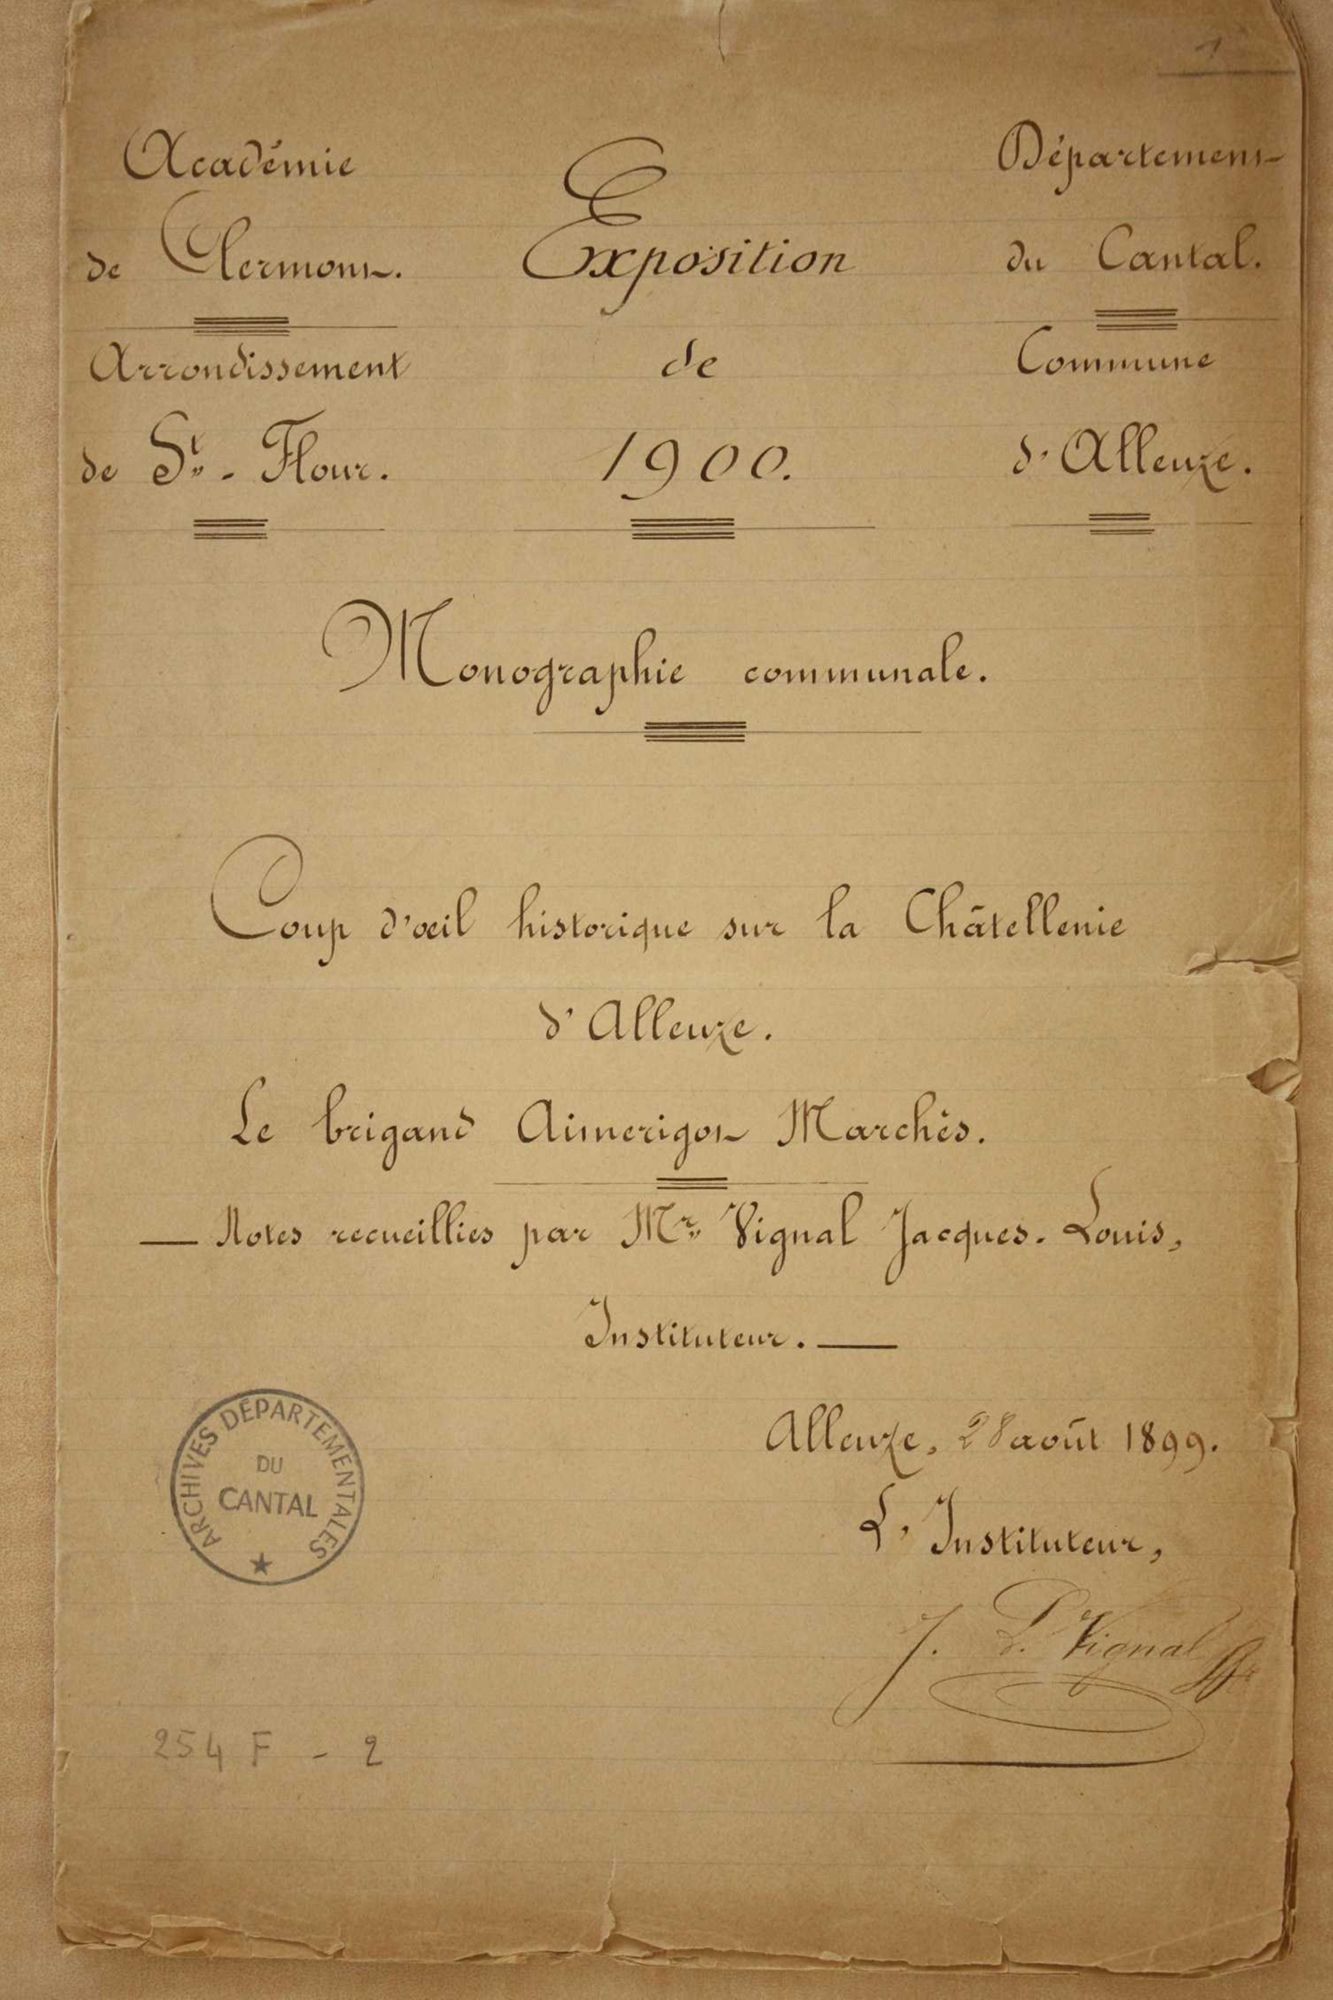 1
Académie
de Clermont.
Arrondissement
de St. - Flour.
Exposition
de
1900.
Département
du Cantal.
Commune
d'Alleuze.
Monographie communale.
Coup d'œil historique sur la Châtellenie
d'Alleuze.
Le brigand Aimerigot Marchès.
— Notes recueillies par Mr. Vignal Jacques-Louis,
Instituteur. —
Alleuze, 28 août 1899.
L'Instituteur,
J. L. Vignal
ARCHIVES DÉPARTEMENTALES
DU
CANTAL
254 F - 2